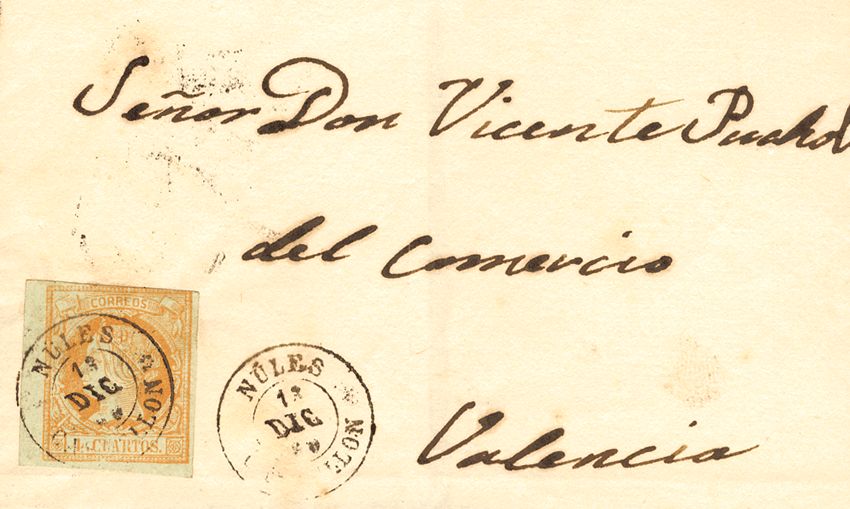 Señor Don Vicente
del Comercio
Valencia
CORREOS
4 CUARTOS.
NULES
13
DIC
NULES
13
DIC